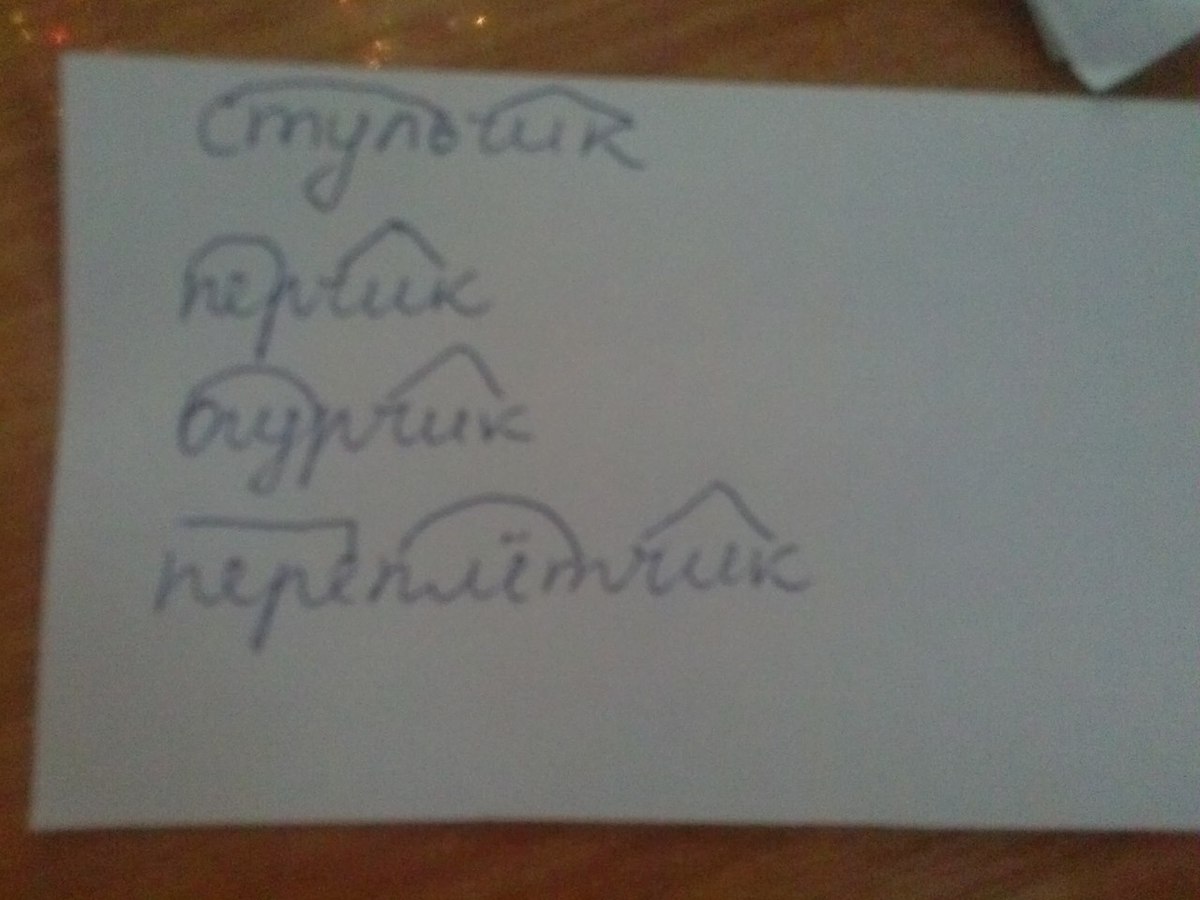 стульчик
перчик
бурчик
переплётчик